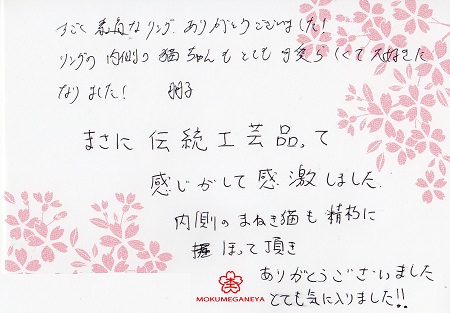 すごく素敵なリング ありがとうございました!
リングの内側の猫ちゃんもとても可愛らしくて大好きに
なりました!
まさに伝統工芸品って
感じがして感激しました
内側のまねき猫も精巧に
ほって頂き
ありがとうございました
とても気に入りました!!
MOKUMEGANEYA